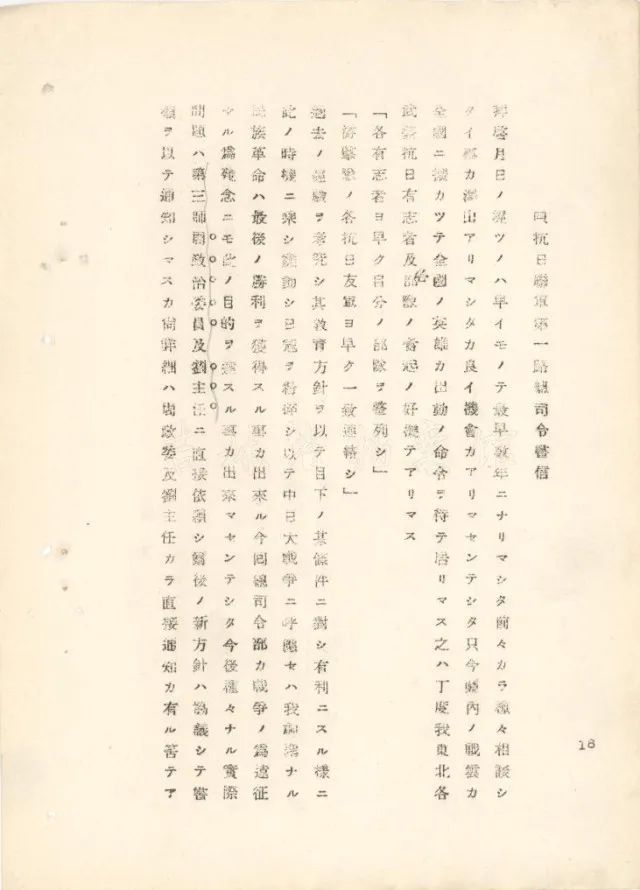 四 抗日聯軍第一路總司令書信
拜啓月日ノ經ツノハ早イモノテ最早數年ニナリマシタ前々カラ種々相談シ
タイ事カ澤山アリマシタカ良イ機會カアリマセンテシタ只今關內ノ戰雲カ
全國ニ擴カツテ全國ノ英雄カ出動ノ命令ヲ待テ居リマス之ハ丁度我東北各
武裝抗日有志者及部隊ノ奮起ノ好機テアリマス
「各有志者ヨ早ク自分ノ部隊ヲ整列シ」
「ノ各抗日友軍ヨ早ク一致連絡シ」
過去ノ經驗ヲ考究シ其教育方針ヲ以テ目下ノ某條件ニ對シ有利ニスル樣ニ
此ノ時機ニ乘シ動シ日寇ヲシ以テ中日大戰爭ニ呼應セハ我ナル
民族革命ハ最後ノ勝利ヲ獲得スル事カ出來ル今回總司令部カ戰爭ノ爲遠征
スル爲殘念ニモ此ノ目的ヲ達スル事カ出來マセンテシタ今後種々ナル實際
問題ハ第三師團政治委員及劉主任ニ直接依賴シ爾後ノ新方針ハ議シテ書
類ヲ以テ通知シマスカ尚詳細ハ周政委及劉主任カラ直接通知カ有ル筈テア
18